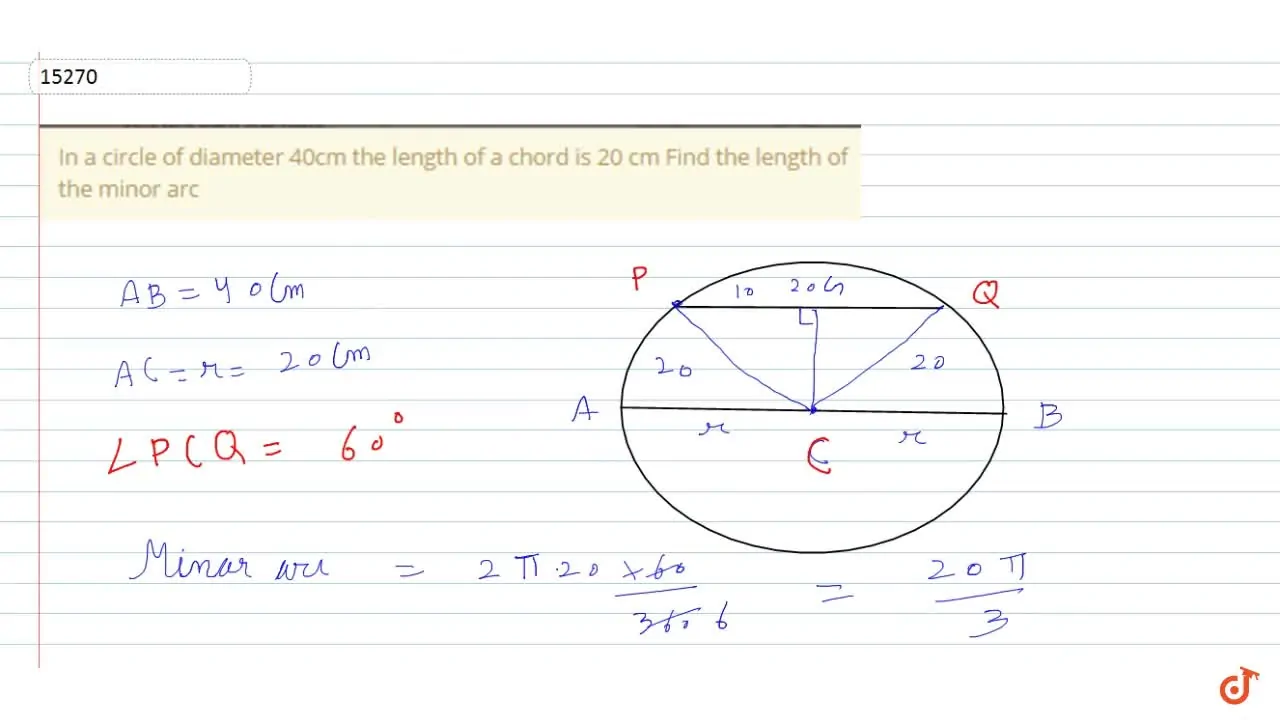 15270
In a circle of diameter 40cm the length of a chord is 20 cm Find the length of
the minor arc
AB = 40 Cm
AC = r = 20 Cm
∠PCQ = 60°
P
10 20 Cm
Q
20 20
A
B
r r
C
Minar arc = 2π·20 × 60 / 360 6 = 20π / 3